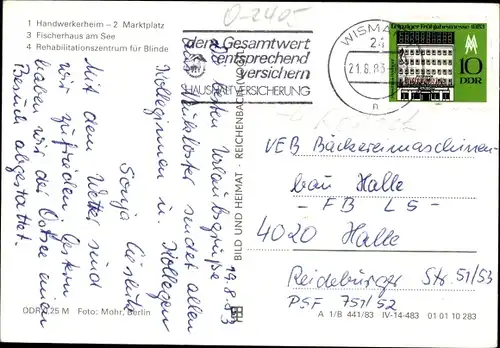 1 Handwerkerheim – 2 Marktplatz
3 Fischerhaus am See
4 Rehabilitationszentrum für Blinde
O-2405
dem Gesamtwert
entsprechend
versichern
HAUSHALTVERSICHERUNG
WISMAR
24
21.8.83
n
Leipziger Frühjahrsmesse 1983
10
DDR
19.8.83
Die besten Urlaubsgrüße
aus sendet allen
Kolleginnen u. Kollegen
Sonja
Mit dem Wetter sind
wir zufrieden. Gestern
haben wir der Ostsee einen
Besuch abgestattet.
BILD UND HEIMAT · REICHENBACH
VEB Bäckereimaschinen-
bau Halle
– FB LS –
4020 Halle
Reideburger Str. 51/53
PSF 751/52
DDR 0,25 M Foto: Mohr, Berlin
A 1/B 441/83 IV-14-483 01 01 10 283